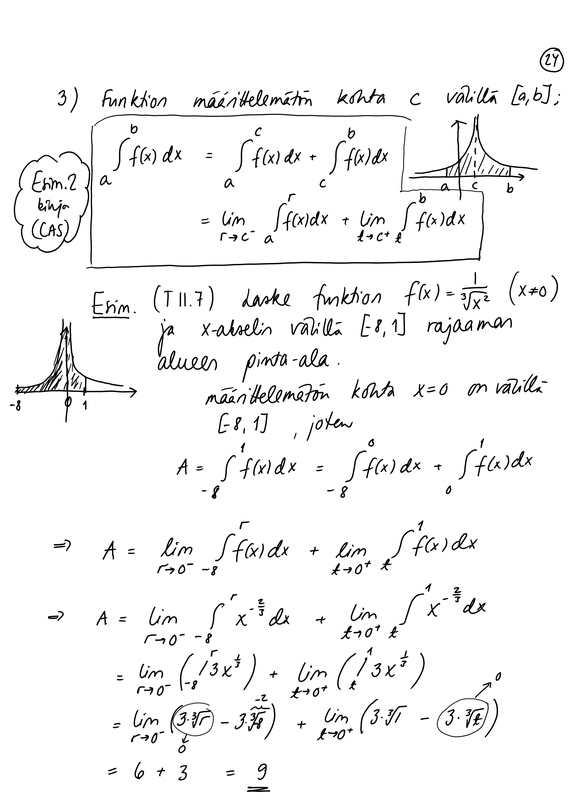 24
3) Funktion määrittelemätön kohta c välillä [a,b];
Esim. 2
kirja
(CAS)
∫_a^b f(x) dx = ∫_a^c f(x) dx + ∫_c^b f(x) dx
= lim_{r→c⁻} ∫_a^r f(x) dx + lim_{t→c⁺} ∫_t^b f(x) dx
a c b
Esim. (T 11.7) Laske funktion f(x) = 1/∛x² (x≠0)
ja x-akselin välillä [-8,1] rajaaman
alueen pinta-ala.
-8 0 1
määrittelemätön kohta x=0 on välillä
[-8,1], joten
A = ∫_{-8}^1 f(x) dx = ∫_{-8}^0 f(x) dx + ∫_0^1 f(x) dx
⇒ A = lim_{r→0⁻} ∫_{-8}^r f(x) dx + lim_{t→0⁺} ∫_t^1 f(x) dx
⇒ A = lim_{r→0⁻} ∫_{-8}^r x^{-2/3} dx + lim_{t→0⁺} ∫_t^1 x^{-2/3} dx
= lim_{r→0⁻} (/_{-8}^r 3x^{1/3}) + lim_{t→0⁺} (/_t^1 3x^{1/3})
= lim_{r→0⁻} (3·∛r - 3·∛-8) + lim_{t→0⁺} (3·∛1 - 3·∛t)
0 -2 0
= 6 + 3 = 9